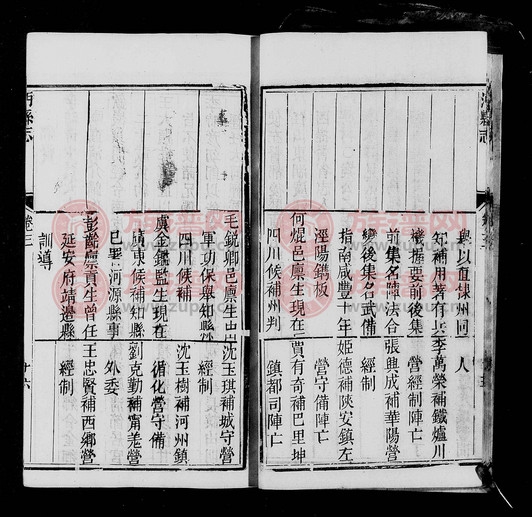 舉以直隸州同
知補用著有兵
機握要前後集
前集名陣法合
變後集名武備
指南咸豐十年
涇陽鐫板
何焜邑廩生現在
四川候補州判
人
李萬榮補鐵爐川
營經制陣亡
張興成補華陽營
經制
姬德補陝安鎮左
營守備陣亡
賈有奇補巴里坤
鎮都司陣亡
沔縣志
卷三
十六
毛銳卿邑廩生由
軍功保舉知縣
四川候補
虞金鑑監生現在
廣東候補知縣
已署河源縣事
彭齡廩貢生曾任
延安府靖邊縣
訓導
沈玉琪補城守營
經制
沈玉樹補河州鎮
循化營守備
劉克勤補甯羌營
外委
王忠賢補西鄉營
經制
族譜网
www.zupu.cn